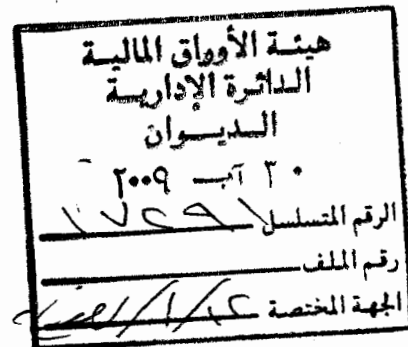 هيئة الأوراق المالية
الدائرة الإدارية
الديوان
٣٠ آب ٢٠٠٩
الرقم المتسلسل
رقم الملف
الجهة المختصة